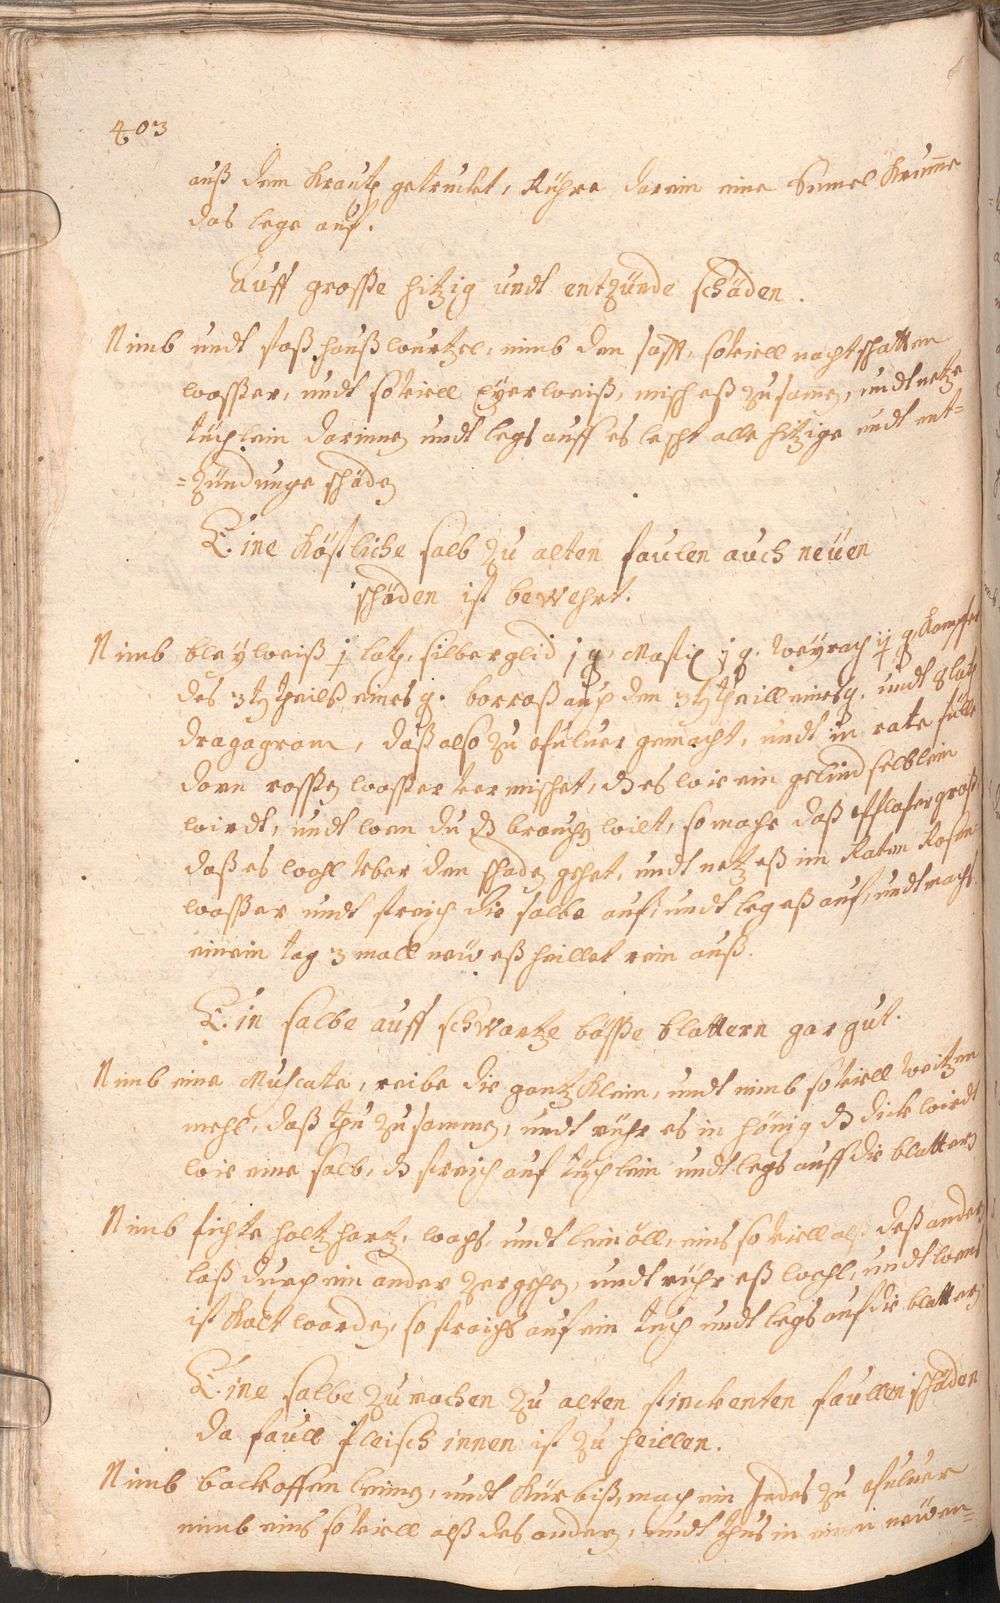 403
auß dem Krautz getruckt, Rühre darein eine Semel Krume
das lege auf.
Auff grosse hitzig undt entzünde schäden.
Nimb undt stoß haußwurtzel, nimb den safft, soviell nachtschatten
wasser, undt soviell Eyerweiß, misch eß zusamen, undt netze
tüchlein darinnen undt legs auff es lescht alle hitzige undt ent=
=zündunge schäden
Eine Köstliche salb zu alten faulen auch neüen
schäden ist bewehrt.
Nimb bleyweiß j loth, silberglid j q. Mastix j q. Weyrach ij q. Kampffer
des 3ten theilß eines q. borras auch den 3ten theill eines q. undt 8 loth
dragagram, daß also zu pfulver gemacht, undt in
rossen wasser vermischet, dz es wie ein gelind selblein
wirdt, undt wen du dz brauchen wilt, so mache daß pflaster groß
daß es wohl über den schaden gehet, undt netz eß im Roten Rosen
wasser undt streich die salbe auf, undt leg eß auf, undt machs
einen tag 3 mall new eß heillet rein auß.
Ein salbe auff schwartze bösse blattern gar gut.
Nimb eine Muscate, reibe die gantz klein, undt nimb soviell weitzen
mehl, daß thu zusammen, undt rühr es in hönig dz dick wirdt
wie eine salb, dz streich auf tüchlein undt legs auff die blattern
Nimb fichte holtz hartz, wachs, undt leinöll, eins soviell alß deß andern
laß durch ein ander zergehen, undt rühr eß wohl, undt wens
ist Kalt worden, so streichs auf ein tuch undt legs auf die blattern
Eine salbe zu machen zu alten stinckenten faullen schäden
da faull fleisch innen ist zu heillen.
Nimb backoffen leimen, undt Kürbiß, mach ein Jedes zu pfulver
nimb eins soviell alß des andern, undt thus in einen newen=